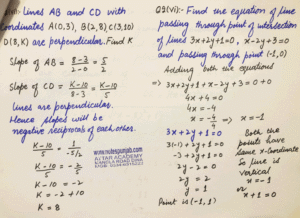 Lines AB and CD with
coordinates A(0,3), B(2,8) C(3,10)
D(8,K) are perpendicular. Find K
Slope of AB = 8-3/2-0 = 5/2
Slope of CD = K-10/8-3 = K-10/5
Lines are perpendicular.
Hence slopes will be
negative reciprocals of each other.
K-10/5 = 1/-5/2
K-10/5 = -2/5
K-10 = -2
K-10 = -2
K = 8
www.notespunjab.com
AZTAR ACADEMY
Q2(vi):- Find the equation of line
passing through point of intersection
of lines 3x+2y+1=0, x-2y+3=0
and passing through point (-1,0)
Adding both the equations
⇒ 3x+2y+1+x-2y+3=0+0
4x+4=0
4x=-4
x=-4/4 ⇒ x=-1
3x+2y+1=0
3(-1)+2y+1=0
-3+2y+1=0
2y-2=0
2y=2
y=1
Point is (-1,1)
Both the
points have
same x-Coordinate
So line is
vertical
x=-1
or
x+1=0